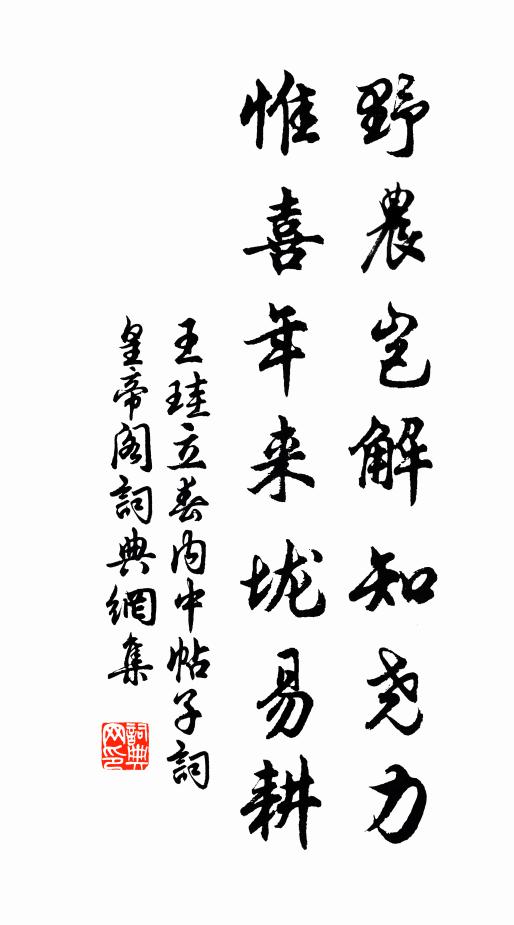 野農岂解知尧力
惟喜年来垅易耕
王珪立春内中帖子詞
皇帝阁詞典網集
詞典网印